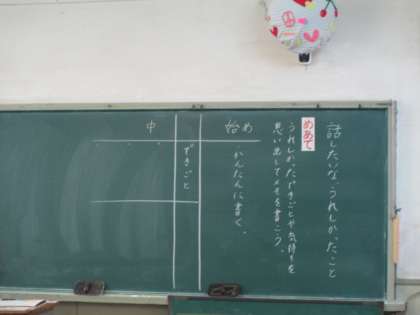 話したいな、うれしかったこと
めあて
うれしかったできごとや気持ちを
思い出してメモを書こう。
始め
・かんたんに書く。
できごと
中